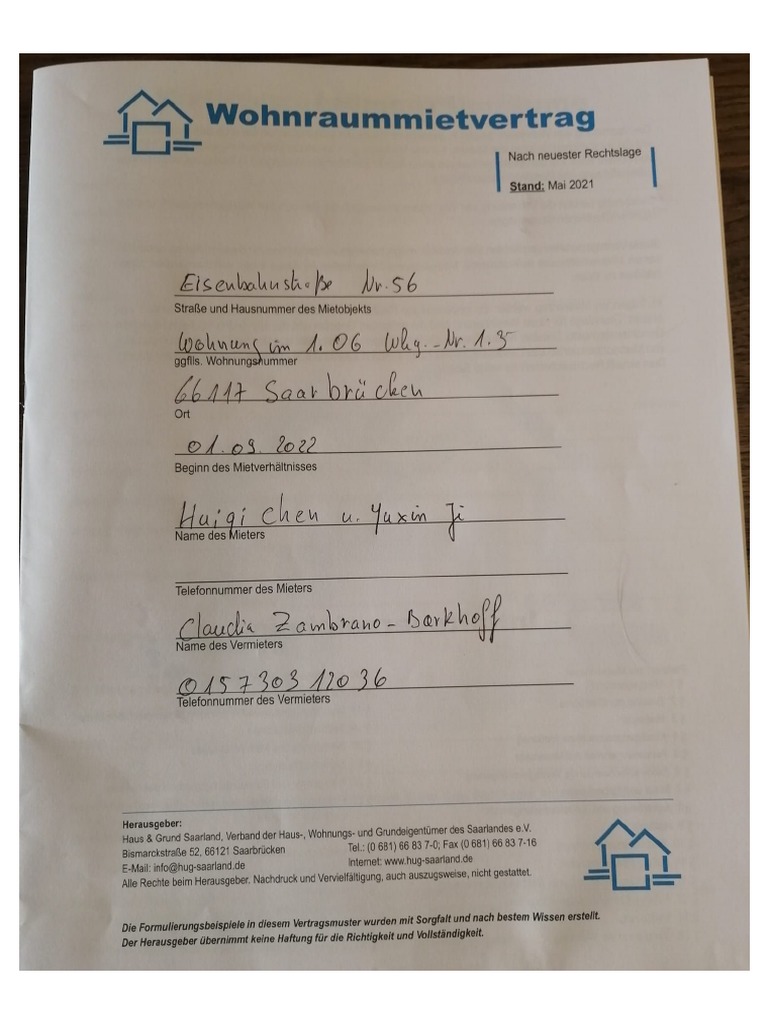 Wohnraummietvertrag
Nach neuester Rechtslage
Stand: Mai 2021
Eisenbahnstraße Nr. 56
Straße und Hausnummer des Mietobjekts
Wohnung im 1. OG Whg.-Nr. 1.5
ggflls. Wohnungsnummer
66117 Saarbrücken
Ort
01.09.2022
Beginn des Mietverhältnisses
Huiqi Chen u. Yuxin Ji
Name des Mieters
Telefonnummer des Mieters
Claudia Zambrano-Borkhoff
Name des Vermieters
0157 303 12036
Telefonnummer des Vermieters
Herausgeber:
Haus & Grund Saarland, Verband der Haus-, Wohnungs- und Grundeigentümer des Saarlandes e.V.
Bismarckstraße 52, 66121 Saarbrücken Tel.: (0 681) 66 83 7-0; Fax (0 681) 66 83 7-16
E-Mail: info@hug-saarland.de Internet: www.hug-saarland.de
Alle Rechte beim Herausgeber. Nachdruck und Vervielfältigung, auch auszugsweise, nicht gestattet.
Die Formulierungsbeispiele in diesem Vertragsmuster wurden mit Sorgfalt und nach bestem Wissen erstellt.
Der Herausgeber übernimmt keine Haftung für die Richtigkeit und Vollständigkeit.